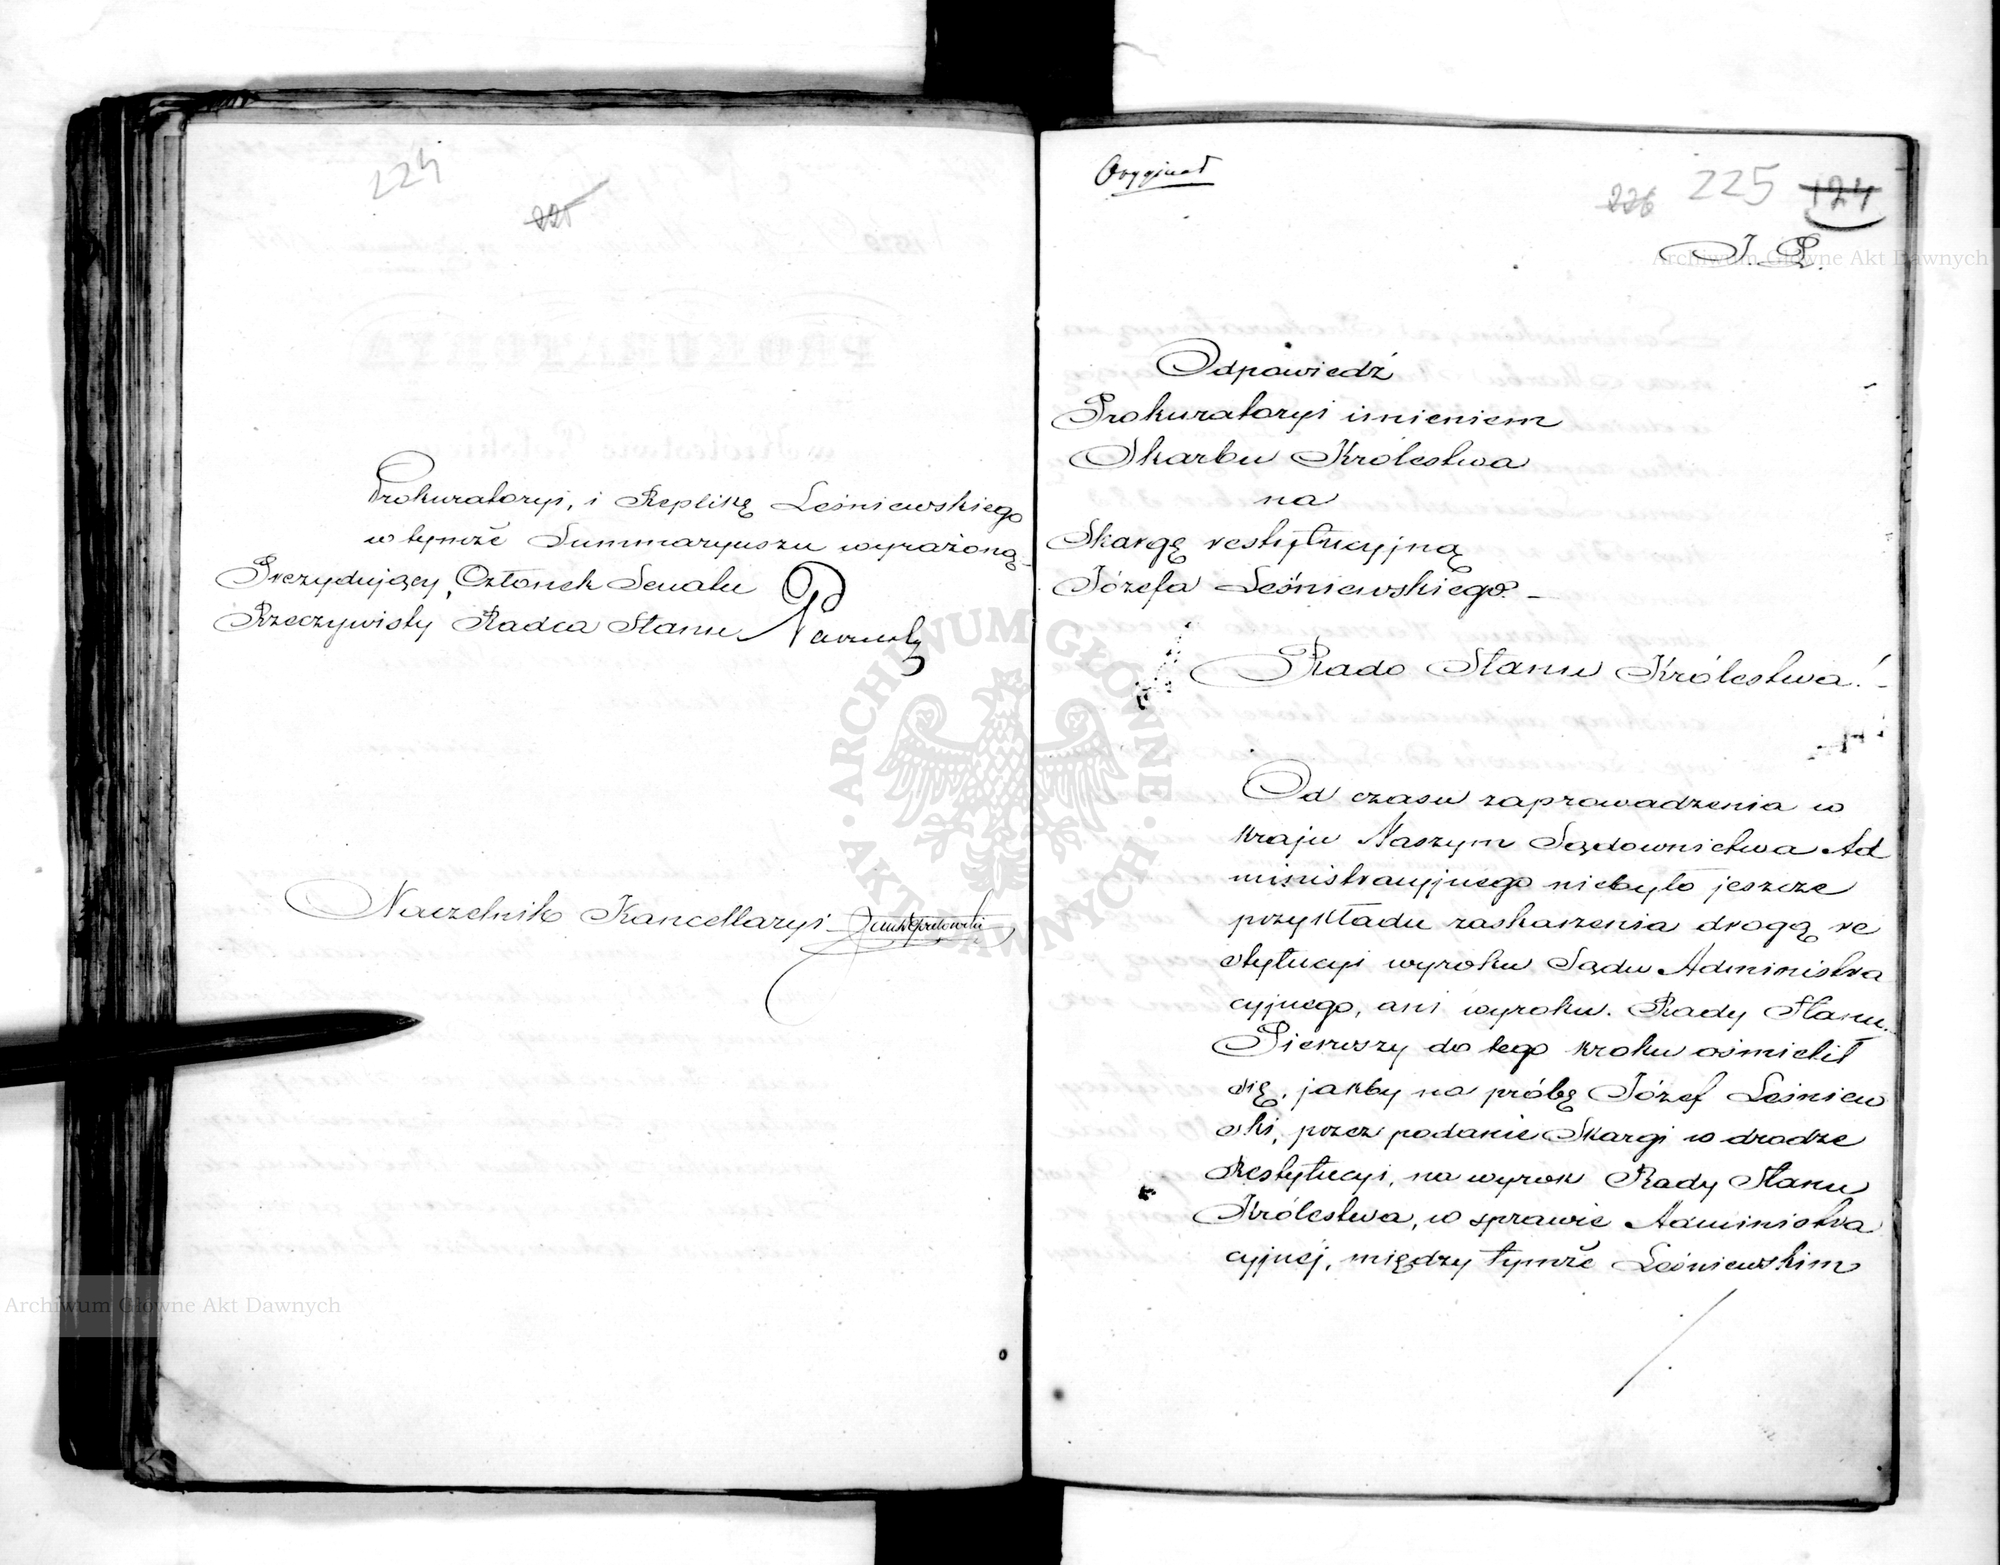 224
225
Prokuratoryi, i Replikę Leśniewskiego
w tymże Summaryuszu wyrażoną.
Prezydujący, Członek Senatu
Rzeczywisty Radca Stanu
Naczelnik Kancellaryi
Oryginał
226 225 124
Odpowiedź
Prokuratoryi imieniem
Skarbu Królestwa
na
Skargę restytucyjną
Józefa Leśniewskiego. –
Rado Stanu Królestwa! –
Od czasu zaprowadzenia w
kraju Naszym Sądownictwa Ad
ministracyjnego niebyło jeszcze
przykładu zaskarzenia drogą re
stytucyi wyroku Sądu Administra
cyjnego, ani wyroku Rady Stanu.
Pierwszy do tego kroku ośmielił
się, jakby na próbę Józef Leśniew
ski, przez podanie Skargi w drodze
Restytucyi, na wyrok Rady Stanu
Królestwa, w sprawie Administra
cyjnéj, między tymże Leśniewskim
ARCHIWUM GŁÓWNE AKT DAWNYCH
Archiwum Główne Akt Dawnych
Archiwum Główne Akt Dawnych